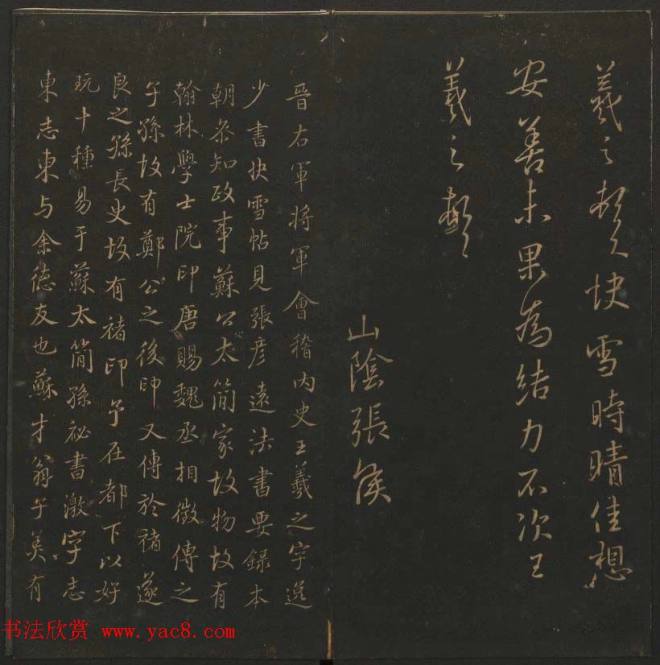 羲之頓首快雪時晴佳想
安善未果為結力不次王
羲之頓首
山陰張侯
晉右軍將軍會稽內史王羲之字逸
少書快雪帖見張彥遠法書要錄本
朝參知政事蘇公太簡家故物故有
翰林學士院印唐賜魏丞相徵傳之
子孫故有鄭公之後印又傳於褚遂
良之孫長史故有褚印予在都下以好
玩十種易于蘇太簡孫祕書激字志
東志東与余德友也蘇才翁子美有
书法欣赏 www.yac8.com